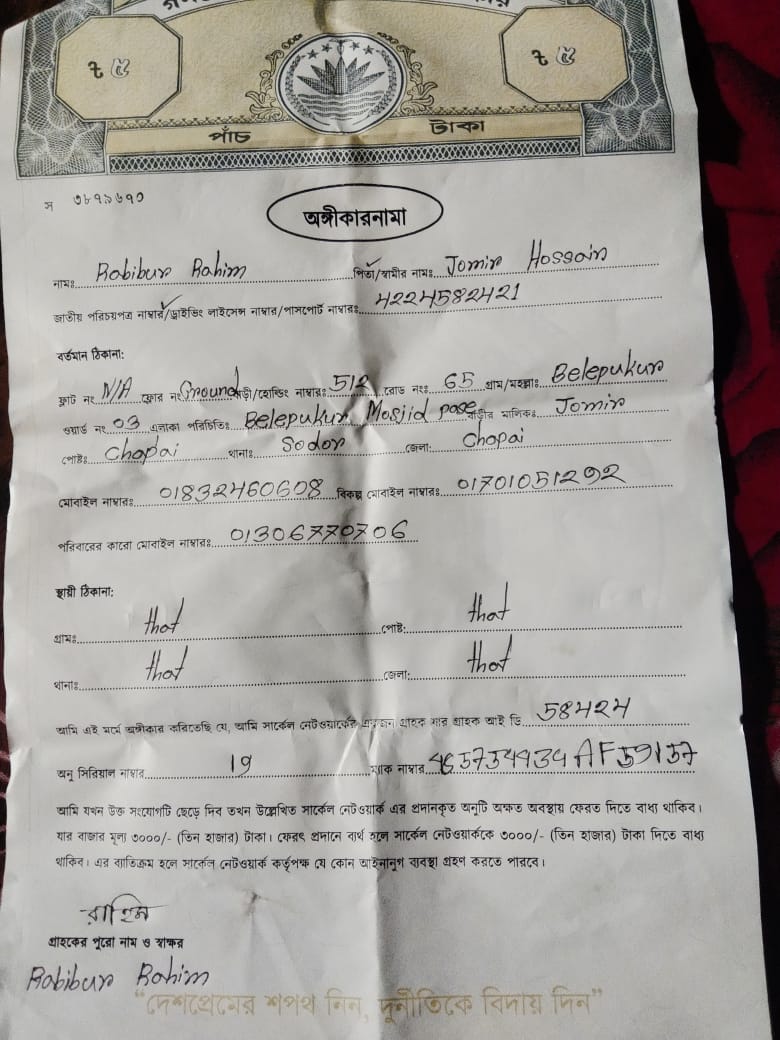 ৳ ৫ ৳ ৫
পাঁচ টাকা
স ৩৮৭৯৬৭০
অঙ্গীকারনামা
নামঃ Rabibur Rahim পিতা/স্বামীর নামঃ Jomir Hossain
জাতীয় পরিচয়পত্র নাম্বার/ড্রাইভিং লাইসেন্স নাম্বার/পাসপোর্ট নাম্বারঃ 4224582421
বর্তমান ঠিকানা:
ফ্লাট নং N/A ফ্লোর নং Ground বাড়ী/হোল্ডিং নাম্বারঃ 512 রোড নংঃ 65 গ্রাম/মহল্লাঃ Belepukur
ওয়ার্ড নং 03 এলাকা পরিচিতিঃ Belepukur Mosjid pase বাড়ীর মালিকঃ Jomir
পোষ্টঃ Chapai থানাঃ Sodor জেলা: Chapai
মোবাইল নাম্বারঃ 01832460608 বিকল্প মোবাইল নাম্বারঃ 01701051292
পরিবারের কারো মোবাইল নাম্বারঃ 01306770706
স্থায়ী ঠিকানা:
গ্রামঃ that পোষ্ট: that
থানাঃ that জেলা: that
আমি এই মর্মে অঙ্গীকার করিতেছি যে, আমি সার্কেল নেটওয়ার্কের একজন গ্রাহক যার গ্রাহক আই ডি 58424
অনু সিরিয়াল নাম্বার 19 ম্যাক নাম্বার 4657544934AF59157
আমি যখন উক্ত সংযোগটি ছেড়ে দিব তখন উল্লেখিত সার্কেল নেটওয়ার্ক এর প্রদানকৃত অনুটি অক্ষত অবস্থায় ফেরত দিতে বাধ্য থাকিব।
যার বাজার মূল্য ৩০০০/- (তিন হাজার) টাকা। ফেরৎ প্রদানে ব্যর্থ হলে সার্কেল নেটওয়ার্ককে ৩০০০/- (তিন হাজার) টাকা দিতে বাধ্য
থাকিব। এর ব্যতিক্রম হলে সার্কেল নেটওয়ার্ক কর্তৃপক্ষ যে কোন আইনানুগ ব্যবস্থা গ্রহণ করতে পারবে।
রাহিম
গ্রাহকের পুরো নাম ও স্বাক্ষর
Rabibur Rahim
“দেশপ্রেমের শপথ নিন, দুর্নীতিকে বিদায় দিন”